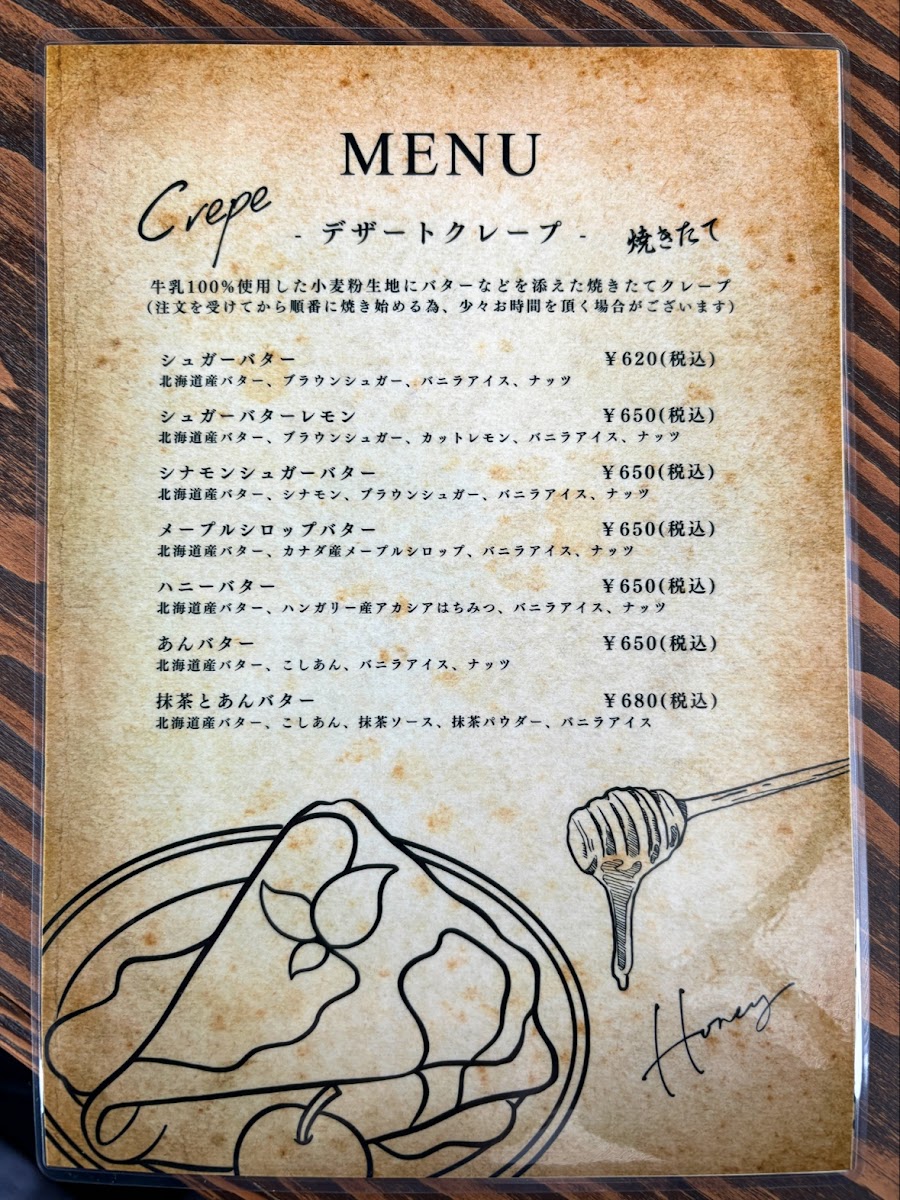 MENU
Crepe
- デザートクレープ -
焼きたて
牛乳100%使用した小麦粉生地にバターなどを添えた焼きたてクレープ
(注文を受けてから順番に焼き始める為、少々お時間を頂く場合がございます)
シュガーバター ¥620(税込)
北海道産バター、ブラウンシュガー、バニラアイス、ナッツ
シュガーバターレモン ¥650(税込)
北海道産バター、ブラウンシュガー、カットレモン、バニラアイス、ナッツ
シナモンシュガーバター ¥650(税込)
北海道産バター、シナモン、ブラウンシュガー、バニラアイス、ナッツ
メープルシロップバター ¥650(税込)
北海道産バター、カナダ産メープルシロップ、バニラアイス、ナッツ
ハニーバター ¥650(税込)
北海道産バター、ハンガリー産アカシアはちみつ、バニラアイス、ナッツ
あんバター ¥650(税込)
北海道産バター、こしあん、バニラアイス、ナッツ
抹茶とあんバター ¥680(税込)
北海道産バター、こしあん、抹茶ソース、抹茶パウダー、バニラアイス
Honey